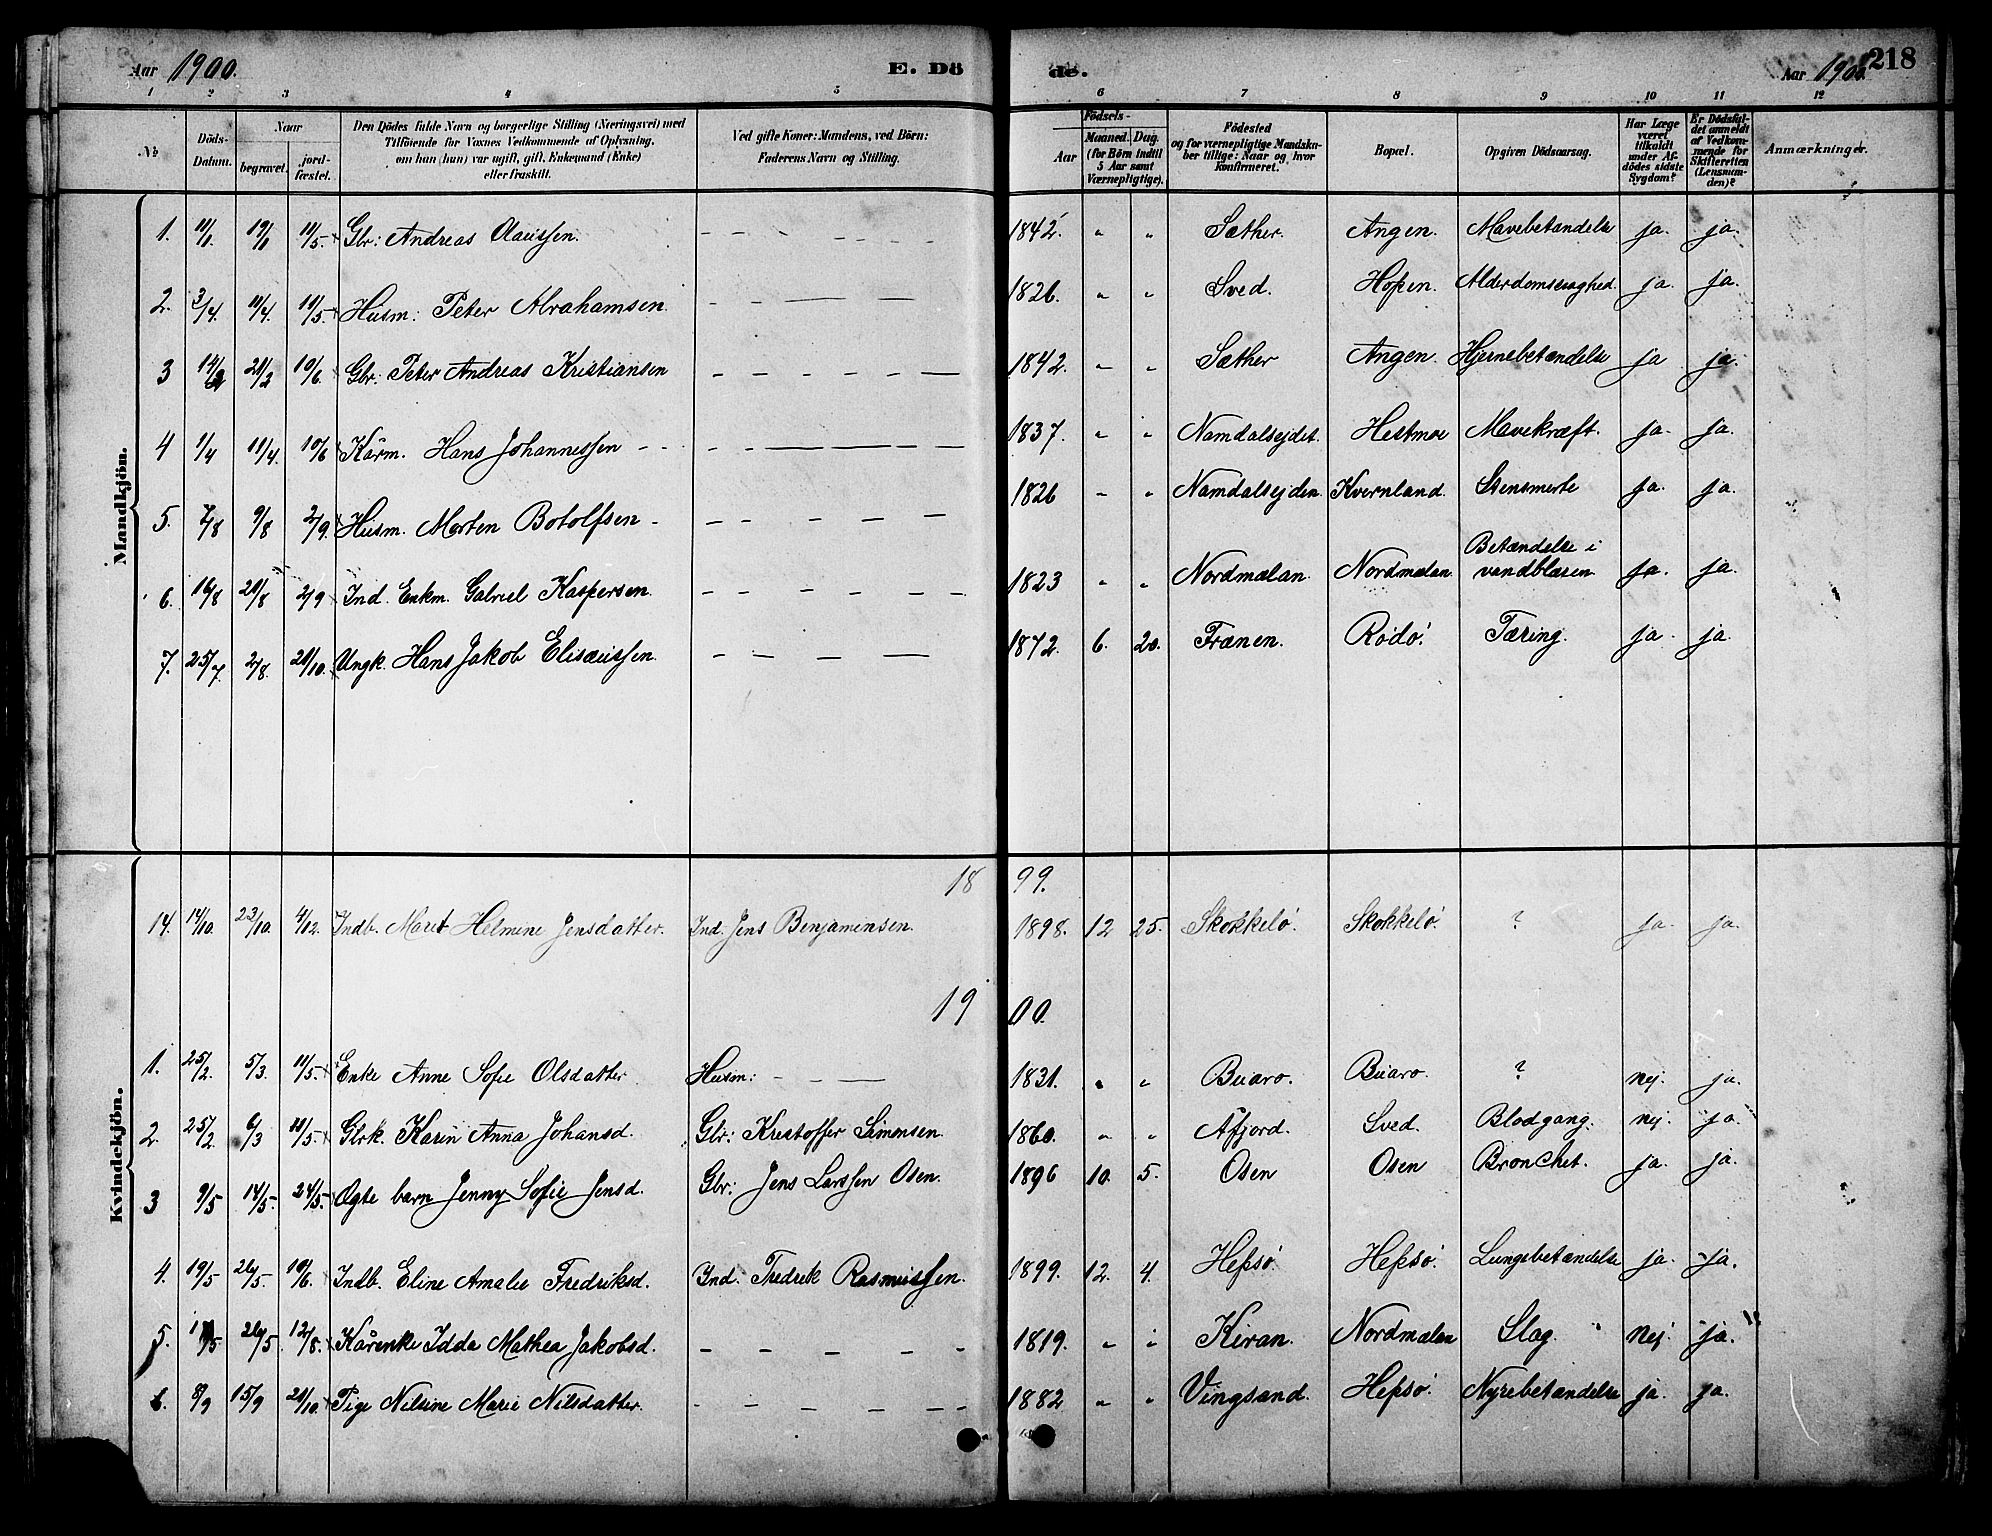 Aar 1900. E. Dö de. Aar 1900. 218
1 2 3 4 5 6 7 8 9 10 11 12
No
Döds-Datum.
Naar
begravet.
jord-fæstet.
Den Dödes fulde Navn og borgerlige Stilling (Næringsvei) med
Tilföiende for Voxnes Vedkommende af Oplysning,
om han (hun) var ugift, gift, Enkemand (Enke)
eller fraskilt.
Ved gifte Koner: Mandens, ved Börn:
Faderens Navn og Stilling.
Födsels-
Aar
Maaned. Dag.
(for Börn indtil
5 Aar samt
Værnepligtige).
Födested
og for værnepligtige Mandska-
ber tillige: Naar og hvor
Konfirmeret.
Bopæl.
Opgiven Dödsaarsag.
Har Læge
været
tilkaldt
under Af-
dödes sidste
Sygdom?
Er Dödsfal-
det anmeldt
af Vedkom-
mende for
Skifteretten
(Lensman-
den)?
Anmærkninger.
Mandkjön.
1. 11/1. 19/1 11/5 Gbr: Andreas Olaussen. 1842. " " Sæther. Angen. Mavebetændelse ja. ja.
2. 3/4. 11/4. 19/5 Husm: Peter Abrahamsen. 1826. " " Sved. Hopen. Alderdomssvaghed. ja. ja.
3 14/2 21/2 10/6. Gbr: Peter Andreas Kristiansen 1842. " " Sæther Angen. Hjernebetændelse ja ja.
4 1/4 11/4. 10/6 Kårm. Hans Johannessen 1837. " " Namdalsejdet. Hestmoe Mavekræft. ja. ja.
5. 7/8 9/8 2/9. Husm. Morten Botolfsen 1826 " " Namdalsejden. Kvernland. Stensmerte ja. ja.
6. 16/8 20/8 2/9 Ind. Enkm. Gabriel Kaspersen. 1823 " " Nordmælan. Nordmælan Betændelse i vandblæren ja. ja.
7. 25/7. 2/8. 21/10. Ungk. Hans Jakob Elisæussen. 1872. 6. 20. Frænen. Rödö. Tæring. ja. ja.
Kvindekjön.
18 99.
14. 14/10. 23/10. 4/12. Indb. Marit Helmine Jensdatter. Ind. Jens Benjaminsen. 1898. 12 25. Skokkelö. Skokkelö. ? ja. ja.
19 00.
1. 25/2. 5/3. 11/5. Enke Anne Sofie Olsdatter. Husm: 1831. " " Buarö. Buarö. ? nej. ja.
2. 25/2. 6/3 11/5. Gbrk. Karin Anna Johansd. Gbr: Kristoffer Simonsen. 1860. " " Åfjord. Sved. Blodgang. nej. ja.
3 9/5 14/5. 24/5. Ægte barn Jenny Sofie Jensd. Gbr: Jens Larssen Osen. 1896 10. 5. Osen Osen Bronchet. ja. ja.
4. 19/5 26/5. 10/6. Indb. Eline Amalie Fredriksd. Ind. Fredrik Rasmussen. 1899. 12. 4. Hepsö. Hepsö. Lungebetændelse ja. ja.
5. 26/5. 12/8. Kårenke Idda Mathea Jakobsd. 1819. " " Kiran. Nordmælan Slag. nej. ja.
6. 8/9 15/9 21/10. Pige Nilsine Marie Nilsdatter. 1882 " " Vingsand. Hepsö. Nyrebetændelse ja. ja.